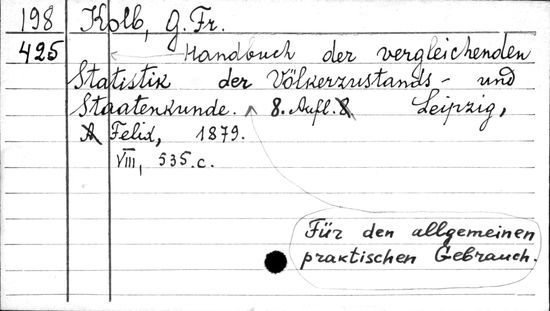 198 Kolb, G. Fr.
425 Handbuch der vergleichenden
Statistik der Völkerzustands- und
Staatenkunde. 8. Aufl. Leipzig,
Felix, 1879.
VIII, 535 c.
Für den allgemeinen
praktischen Gebrauch.